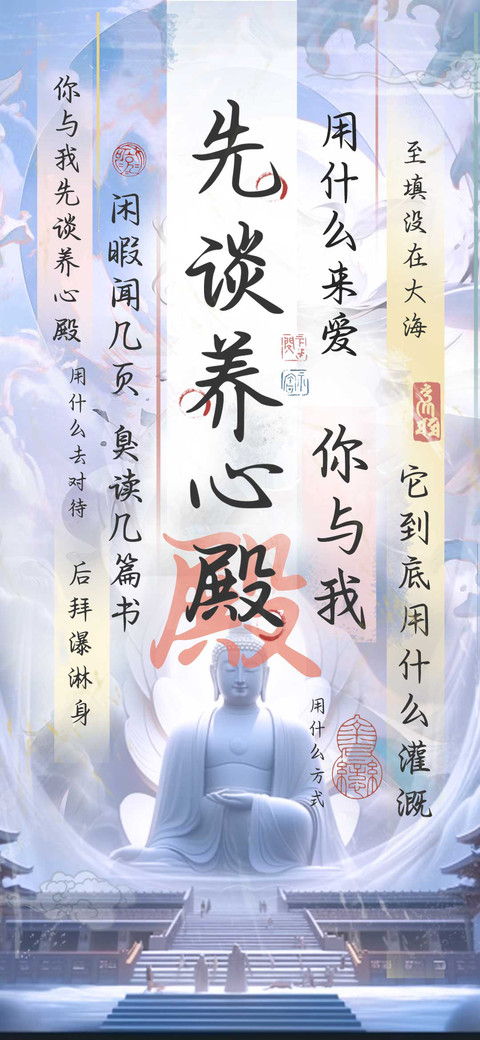 至填没在大海
它到底用什么灌溉
用什么来爱
你与我
用什么方式
先谈养心殿
殿
闲暇闻几页
臭读几篇书
你与我先谈养心殿
用什么去对待
后拜瀑淋身